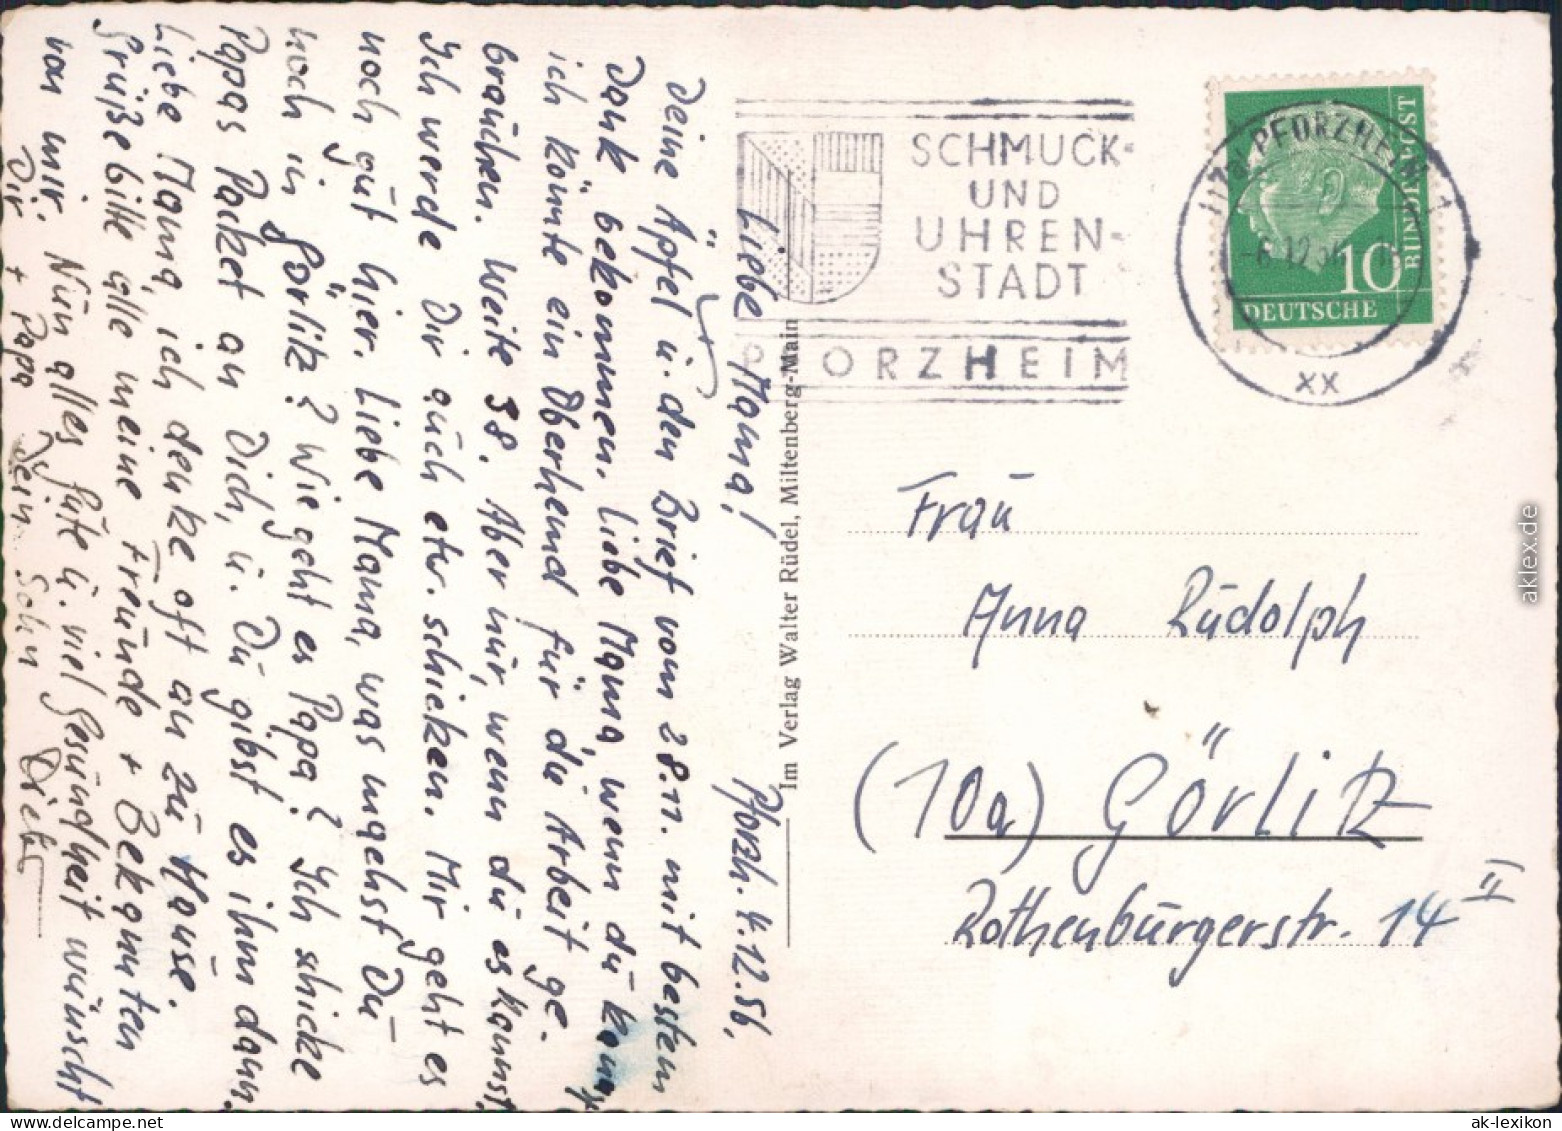 Pforzh. 4.12.56,
Liebe Mama!
Deine Äpfel u. den Brief vom 28.11. mit bestem
Dank bekommen. Liebe Mama, wenn du kannst
ich könnte ein Oberhemd für die Arbeit ge-
brauchen. Weite 38. Aber nur, wenn du es kannst,
Ich werde Dir auch etw. schicken. Mir geht es
noch gut hier. Liebe Mama, was machst Du
noch in Görlitz? Wie geht es Papa? Ich schicke
Papas Packet an Dich, u. Du gibst es ihm dann.
Liebe Mama, ich denke oft an zu Hause.
Grüße bitte alle meine Freunde + Bekannten
von mir. Nun alles Gute u. viel Gesundheit wünscht
Dir + Papa Dein Sohn Dieter
Im Verlag Walter Rüdel, Miltenberg-Main
SCHMUCK-
UND
UHREN-
STADT
PFORZHEIM
PFORZHEIM 1
-6.12.56
xx
10
DEUTSCHE
BUNDESPOST
Frau
Anna Rudolph
(10a) Görlitz
Rothenburgerstr. 14 II
aklex.de
ak-lexikon